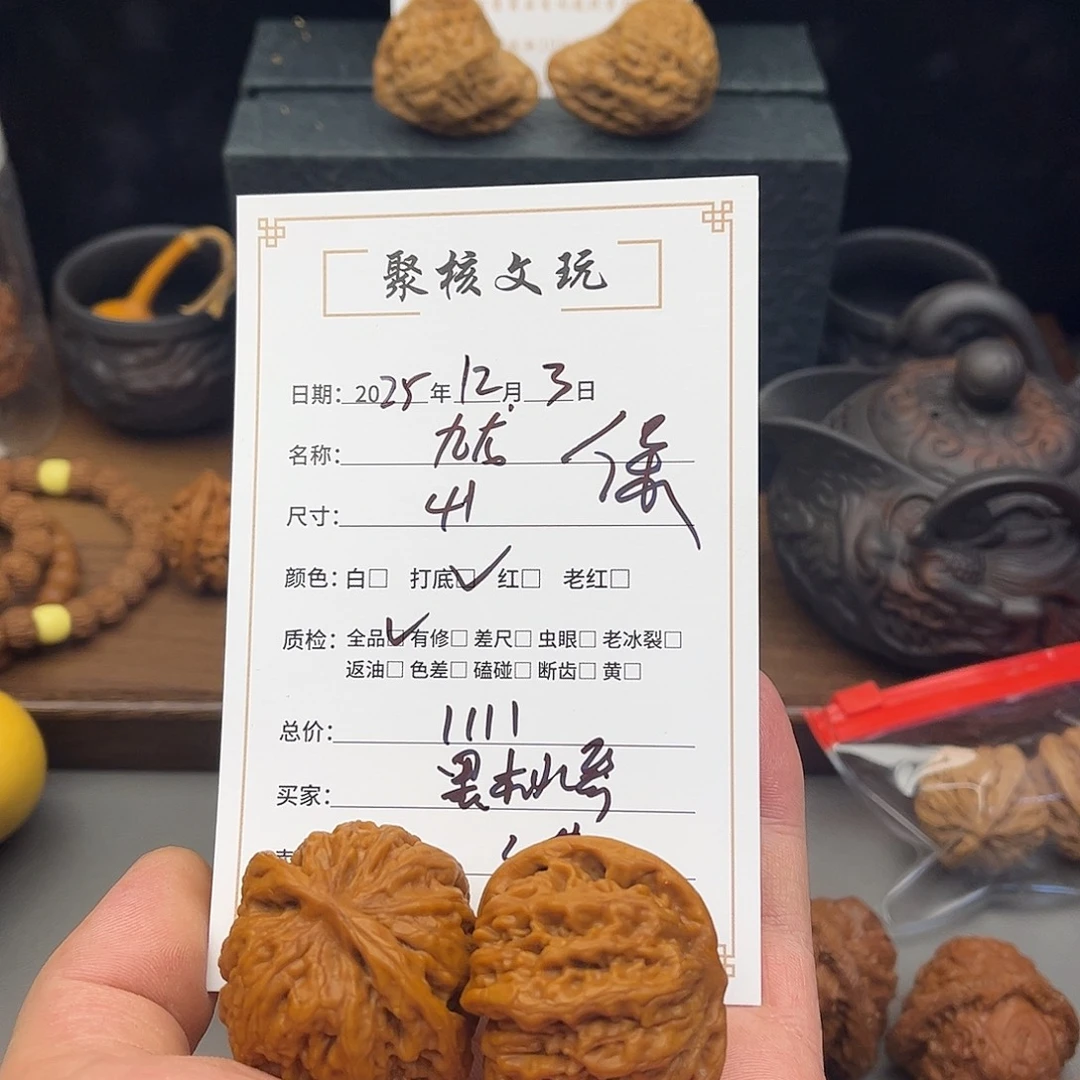 聚核文玩
日期：2025年12月3日
名称：九龙
尺寸：41
颜色：白□ 打底□✓ 红□ 老红□
质检：全品□✓ 有修□ 差尺□ 虫眼□ 老冰裂□
返油□ 色差□ 磕碰□ 断齿□ 黄□
总价：1111
买家：